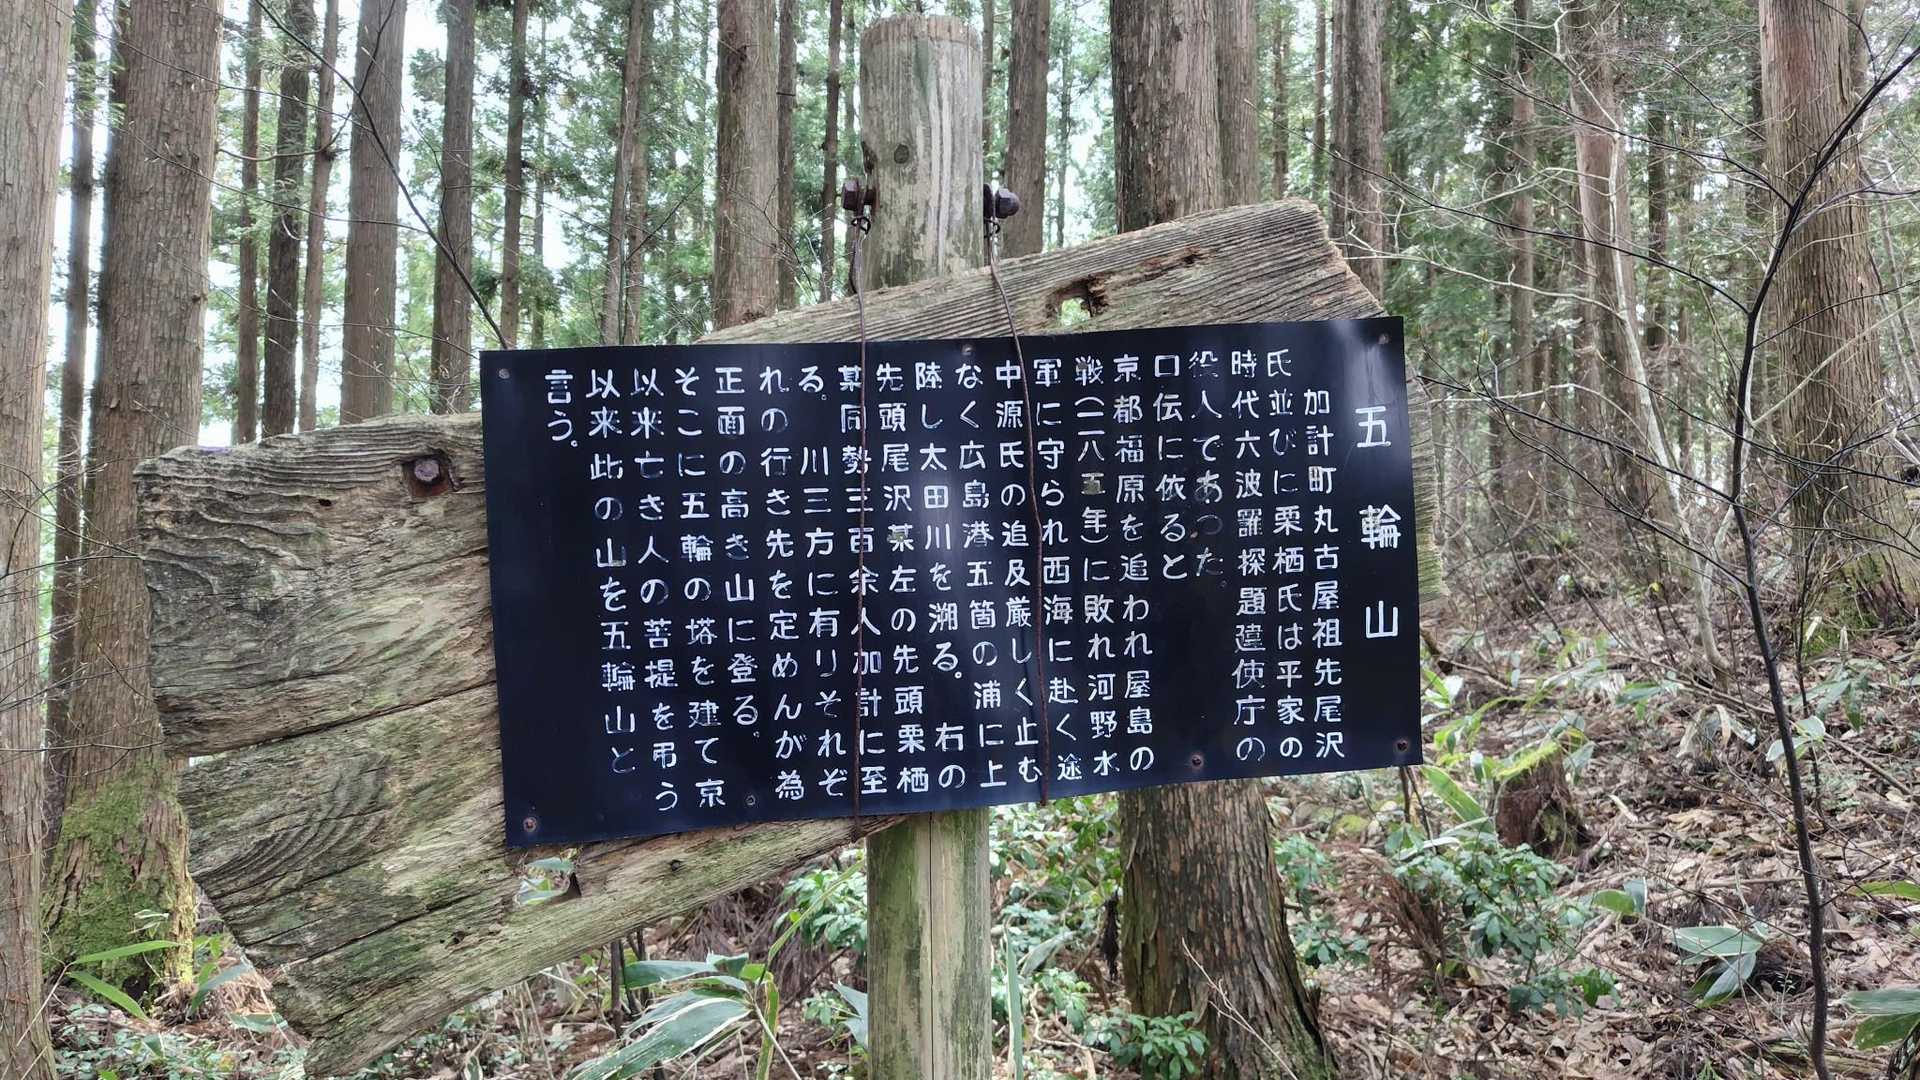 五輪山
加計町丸古屋祖先尾沢
氏並びに栗栖氏は平家の
時代六波羅探題建使庁の
役人であった。
口伝に依ると
京都福原を追われ屋島の
戦(一一八五年)に敗れ河野水
軍に守られ西海に赴く途
中源氏の追及厳しく止む
なく広島港五箇の浦に上
陸し太田川を溯る。 右の
先頭尾沢某左の先頭栗栖
某同勢三百余人加計に至
る。 川三方に有りそれぞ
れの行き先を定めんが為
正面の高き山に登る。
そこに五輪の塔を建て京
以来亡き人の菩提を弔う
以来此の山を五輪山と
言う。